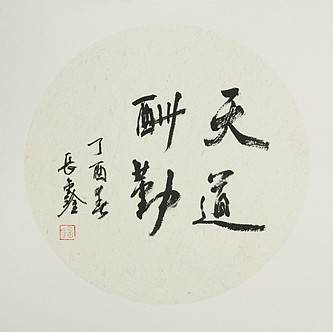 天道
酬勤
丁酉春
長鑫